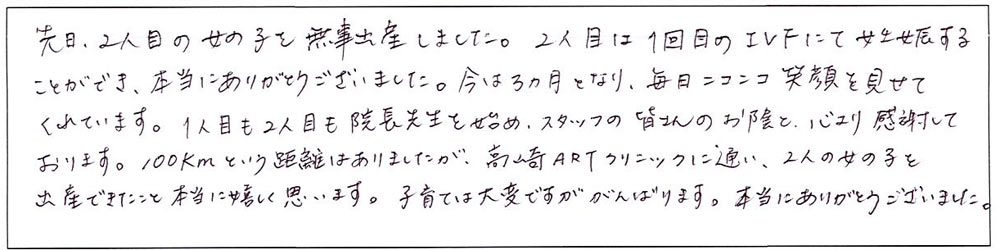 先日、2人目の女の子を無事出産しました。2人目は1回目のIVFにて妊娠する
ことができ、本当にありがとうございました。今は3ヵ月となり、毎日ニコニコ笑顔を見せて
くれています。1人目も2人目も院長先生を始め、スタッフの皆さんのお陰と、心より感謝して
おります。100Kmという距離はありましたが、高崎ARTクリニックに通い、2人の女の子を
出産できたこと本当に嬉しく思います。子育ては大変ですががんばります。本当にありがとうございました。